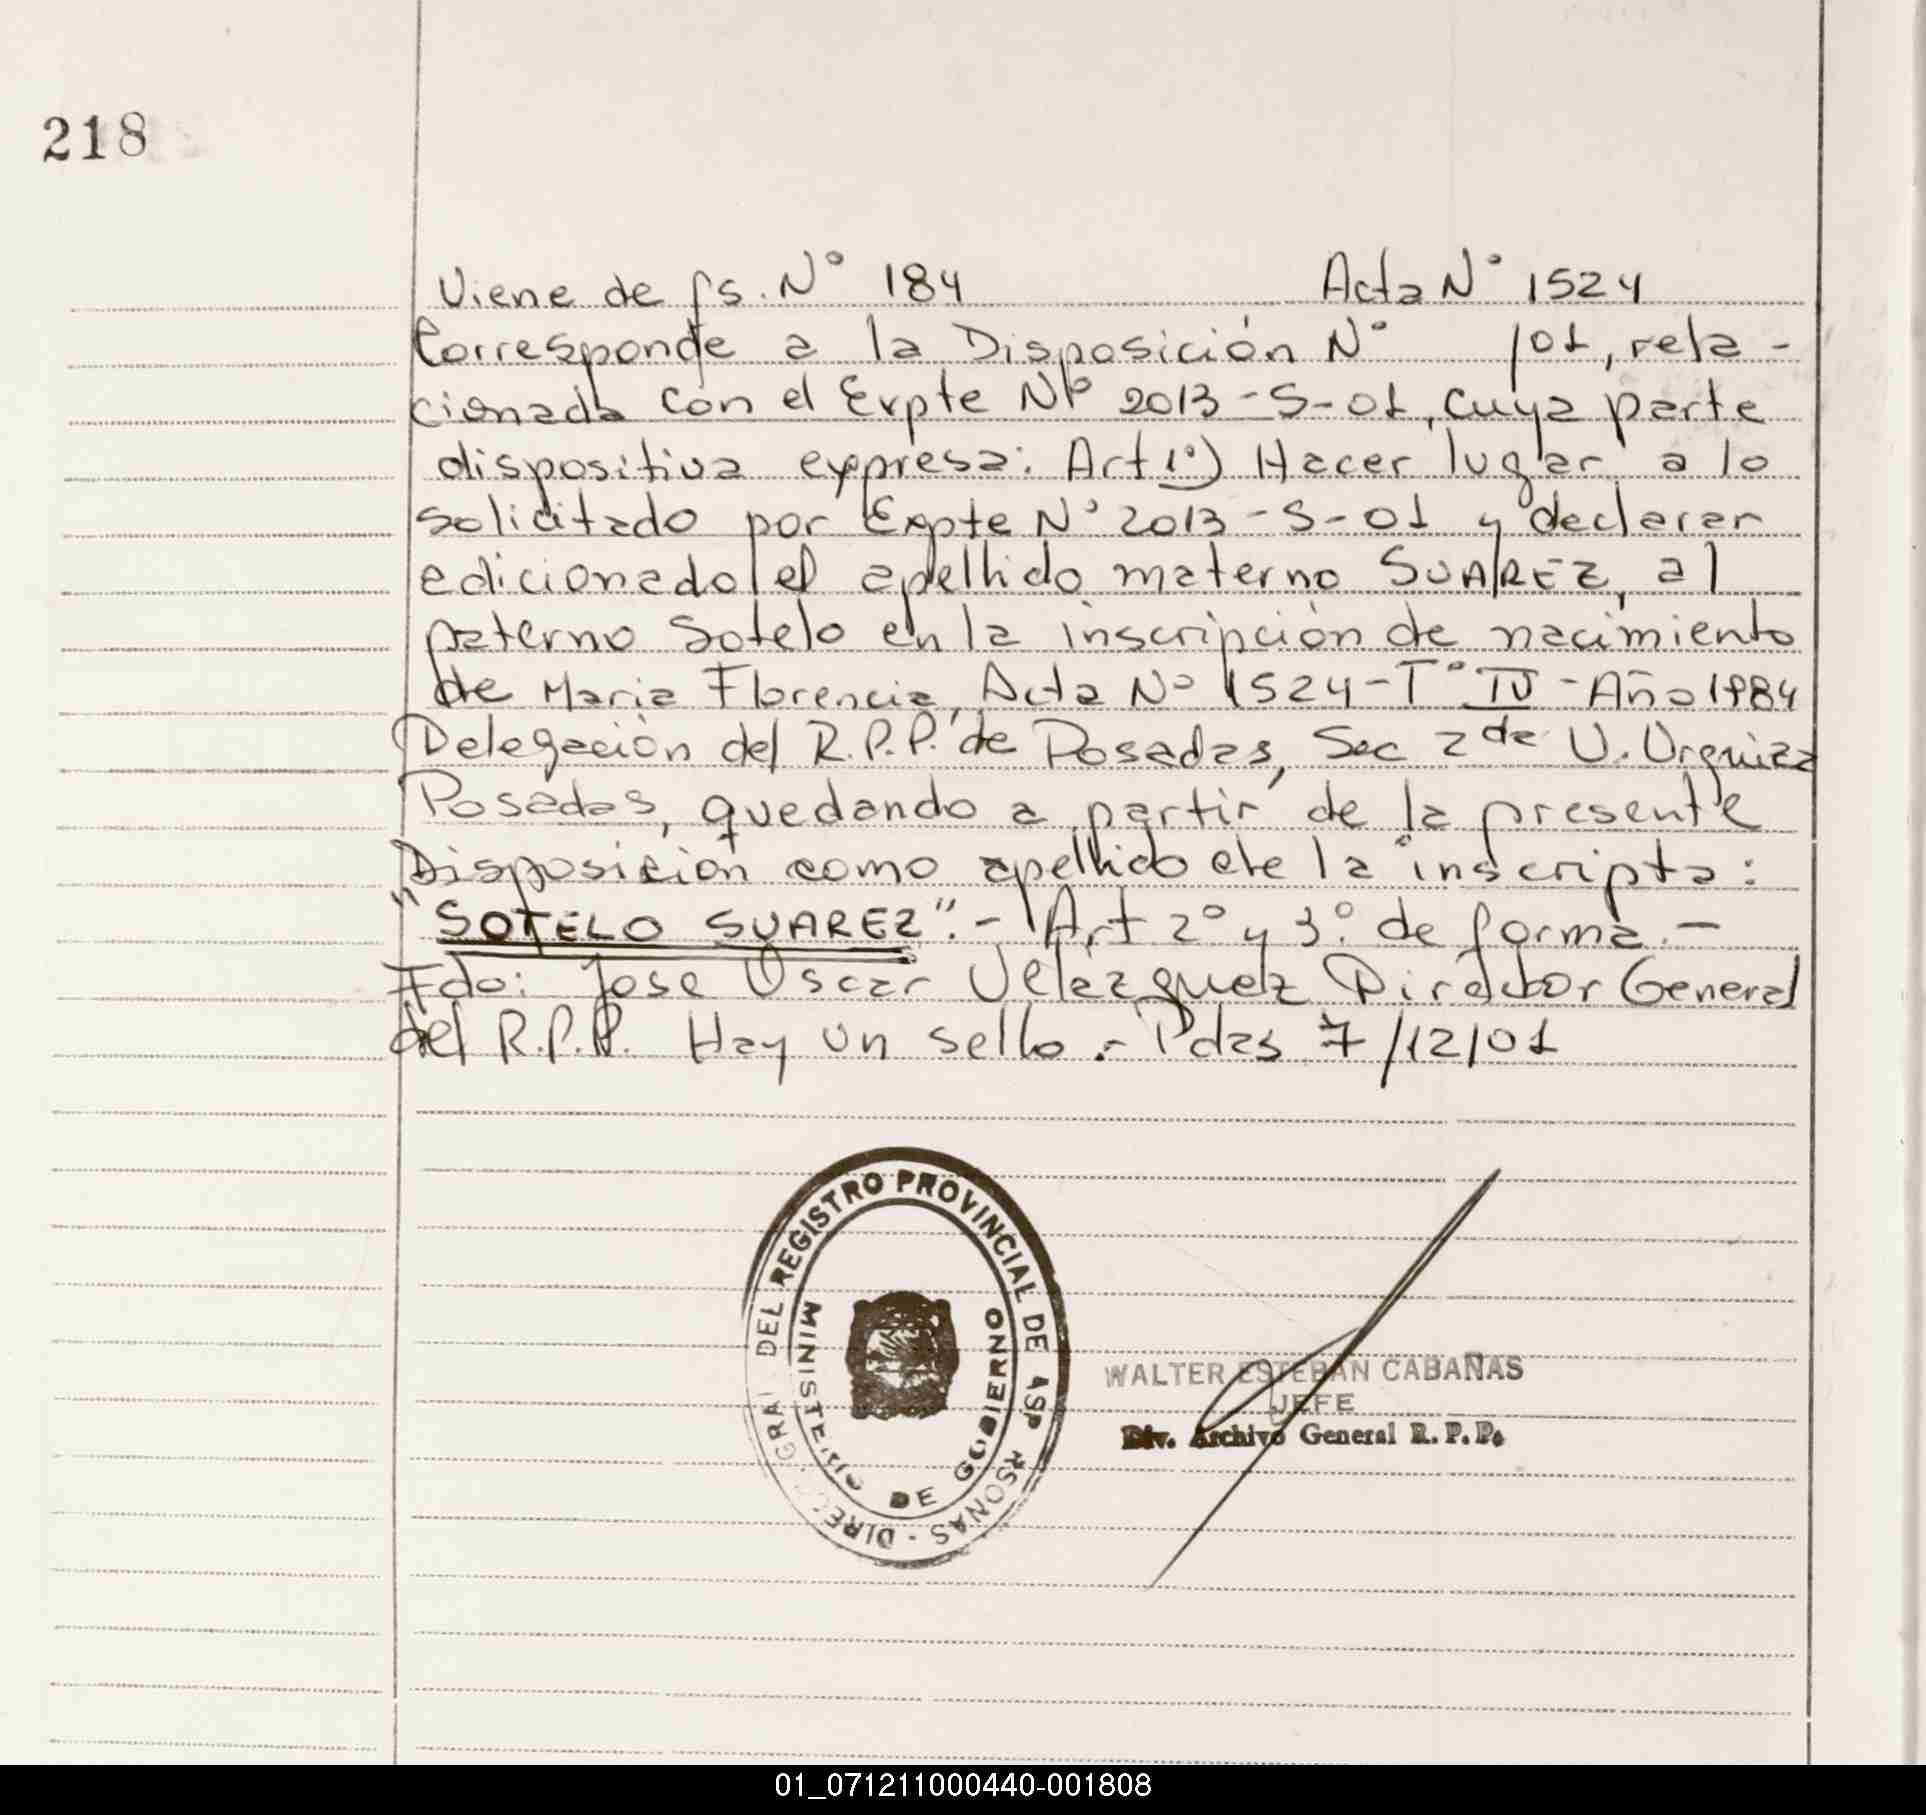 218
Viene de fs. N° 184 Acta N° 1524
Corresponde a la Disposición N° /01, rela-
cionada con el Expte N° 2013-S-01, cuya parte
dispositiva expresa: Art 1°) Hacer lugar a lo
solicitado por Expte N° 2013-S-01 y declarar
adicionado el apellido materno SUAREZ, al
paterno Sotelo en la inscripción de nacimiento
de Maria Florencia, Acta N° 1524-T° IV-Año 1984
Delegación del R.P.P. de Posadas, Sec 2da U. Urquiza
Posadas, quedando a partir de la presente
Disposición como apellido de la inscripta:
"SOTELO SUAREZ".- Art 2° y 3° de forma.-
Fdo: Jose Oscar Velazquez Director General
del R.P.P. Hay un sello.- Pdas 7/12/01
GRAL DEL REGISTRO PROVINCIAL DE
MINISTERIO DE GOBIERNO
WALTER ESTEBAN CABAÑAS
JEFE
Div. Archivo General R.P.P.
01_071211000440-001808